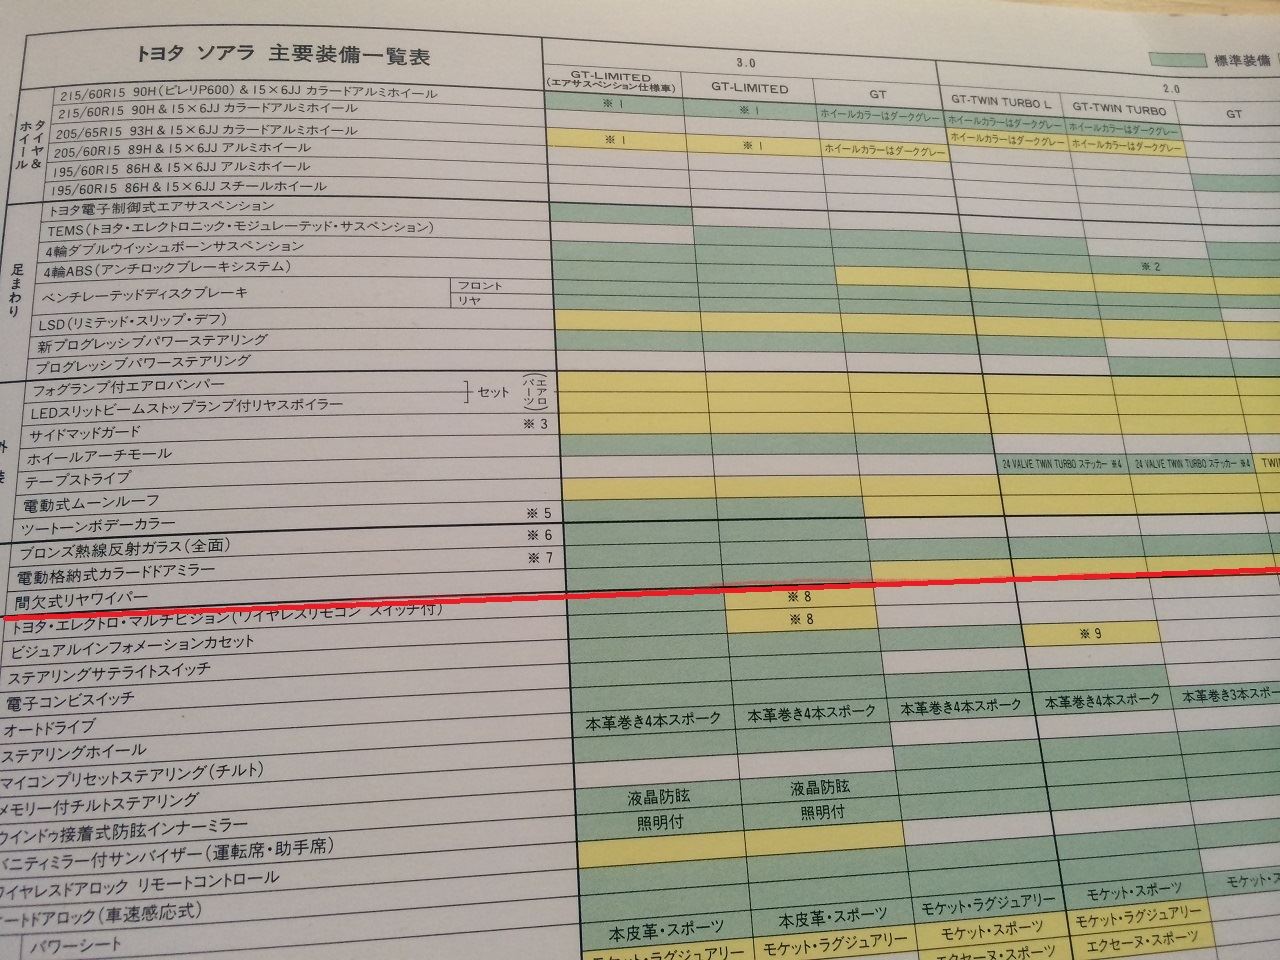 トヨタ ソアラ 主要装備一覧表
標準装備
3.0
2.0
GT-LIMITED
(エアサスペンション仕様車)
GT-LIMITED
GT
GT-TWIN TURBO L
GT-TWIN TURBO
GT
タイヤ&
ホイール
215/60R15 90H(ピレリP600)&15×6JJ カラードアルミホイール
215/60R15 90H&15×6JJ カラードアルミホイール ※1 ※1 ホイールカラーはダークグレー ホイールカラーはダークグレー ホイールカラーはダークグレー
205/65R15 93H&15×6JJ カラードアルミホイール
205/60R15 89H&15×6JJ アルミホイール ※1 ※1 ホイールカラーはダークグレー ホイールカラーはダークグレー ホイールカラーはダークグレー
195/60R15 86H&15×6JJ アルミホイール
195/60R15 86H&15×6JJ スチールホイール
足まわり
トヨタ電子制御式エアサスペンション
TEMS(トヨタ・エレクトロニック・モジュレーテッド・サスペンション)
4輪ダブルウイッシュボーンサスペンション
4輪ABS(アンチロックブレーキシステム) ※2
ベンチレーテッドディスクブレーキ
フロント
リヤ
LSD(リミテッド・スリップ・デフ)
新プログレッシブパワーステアリング
プログレッシブパワーステアリング
外装
フォグランプ付エアロバンパー
LEDスリットビームストップランプ付リヤスポイラー
セット
(エアロパーツ)
サイドマッドガード ※3
ホイールアーチモール
テープストライプ 24 VALVE TWIN TURBO ステッカー ※4 24 VALVE TWIN TURBO ステッカー ※4 TWIN
電動式ムーンルーフ
ツートーンボデーカラー ※5
ブロンズ熱線反射ガラス(全面) ※6
電動格納式カラードドアミラー ※7
間欠式リヤワイパー
トヨタ・エレクトロ・マルチビジョン(ワイヤレスリモコン スイッチ付) ※8
ビジュアルインフォメーションカセット ※8
ステアリングサテライトスイッチ ※9
電子コンビスイッチ
オートドライブ
ステアリングホイール 本革巻き4本スポーク 本革巻き4本スポーク 本革巻き4本スポーク 本革巻き4本スポーク 本革巻き3本スポー
マイコンプリセットステアリング(チルト)
メモリー付チルトステアリング
ウインドゥ接着式防眩インナーミラー 液晶防眩 液晶防眩
バニティミラー付サンバイザー(運転席・助手席) 照明付 照明付
ワイヤレスドアロック リモートコントロール
ートドアロック(車速感応式)
パワーシート
本皮革・スポーツ 本皮革・スポーツ モケット・ラグジュアリー モケット・スポーツ モケット・ス
モケット・ラグジュアリー モケット・ラグジュアリー モケット・スポーツ モケット・ラグジュアリー
エクセーヌ・スポーツ エクセーヌ・スポーツ